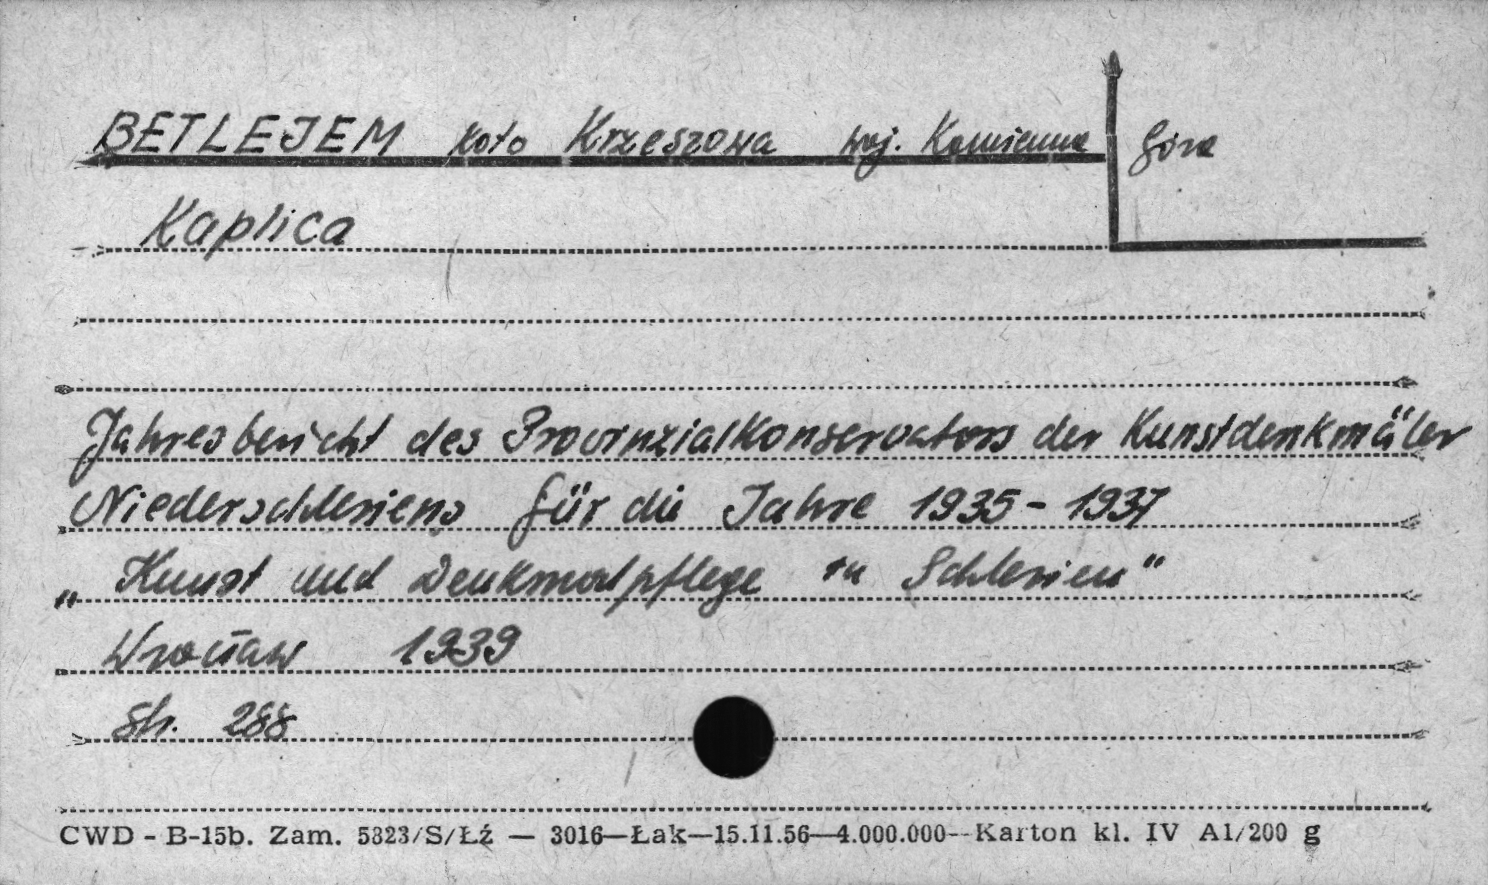 BETLEJEM koło Krzeszowa woj. Kamienna Góra
Kaplica
Jahresbericht des Provinzialkonservators der Kunstdenkmäler
Niederschlesiens für die Jahre 1935 - 1937
„Kunst und Denkmalpflege in Schlesien"
Wrocław 1939
Str. 288
CWD - B-15b. Zam. 5323/S/Łź — 3016—Łak—15.11.56—4.000.000—Karton kl. IV A1/200 g